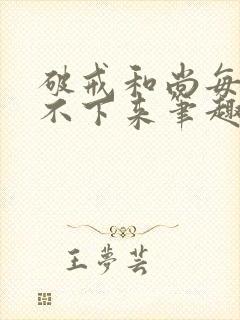 破戒和尚每
不下来笔趣
王梦芸